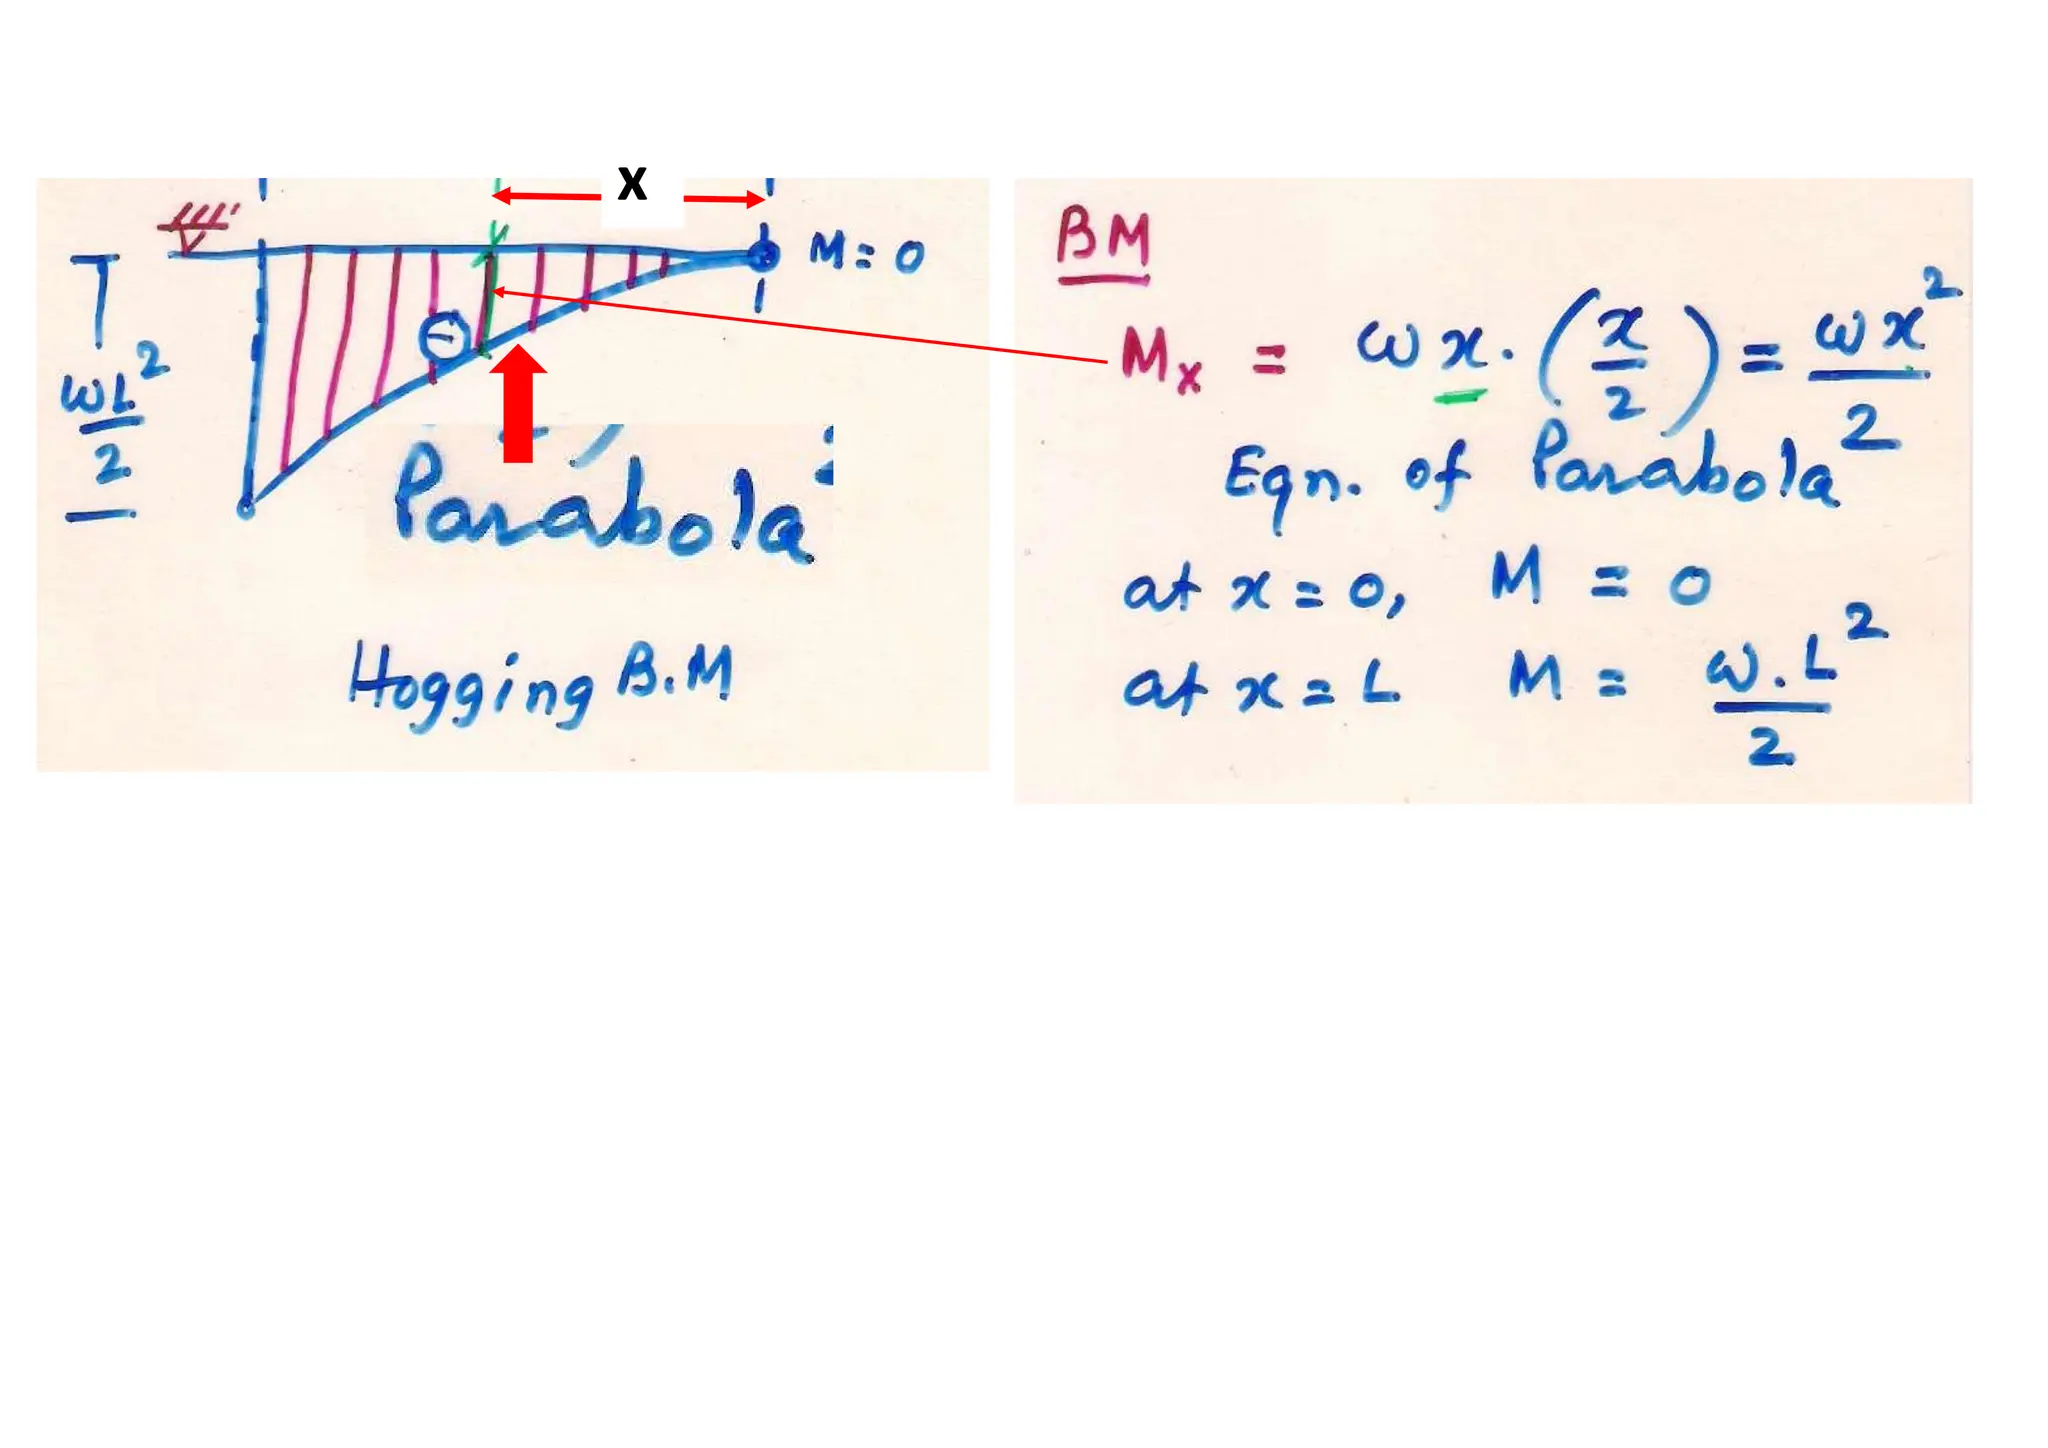 X
M = 0
⊖
wL²/2
Parabola
Hogging B.M
BM
Mx = ωx.(x/2) = ωx²/2
Eqn. of Parabola
at x = 0, M = 0
at x = L M = ω.L²/2